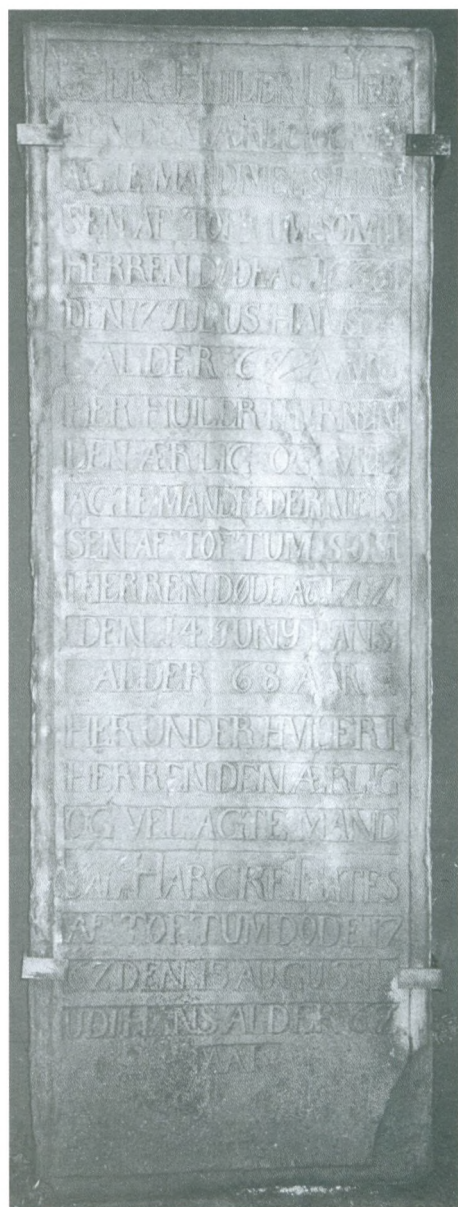 HER HUILER I HER
REN DEN ÆRLIG OG VEL
AGTE MAND NIELS HAN
SEN AF TOFTUM SOM I
HERREN DØDE AO
DEN 17 JULIUS HANS
ALDER AAR
HER HUILER I HERREN
DEN ÆRLIG OG VEL
AGTE MAND PEDER NIELS
SEN AF TOFTUM SOM
I HERREN DØDE AO 1707
DEN 14 JUNY HANS
ALDER 68 AAR
HER UNDER HVILER I
HERREN DEN ÆRLIG
OG VEL AGTE MAND
SAL
AF TOFTUM DØDE 17
67 DEN 15 AUGUSTI
UDI HANS ALDER 67
AAR